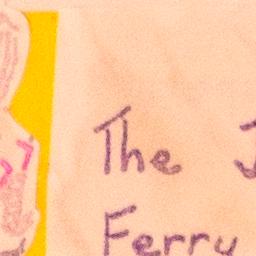 The J
Ferry